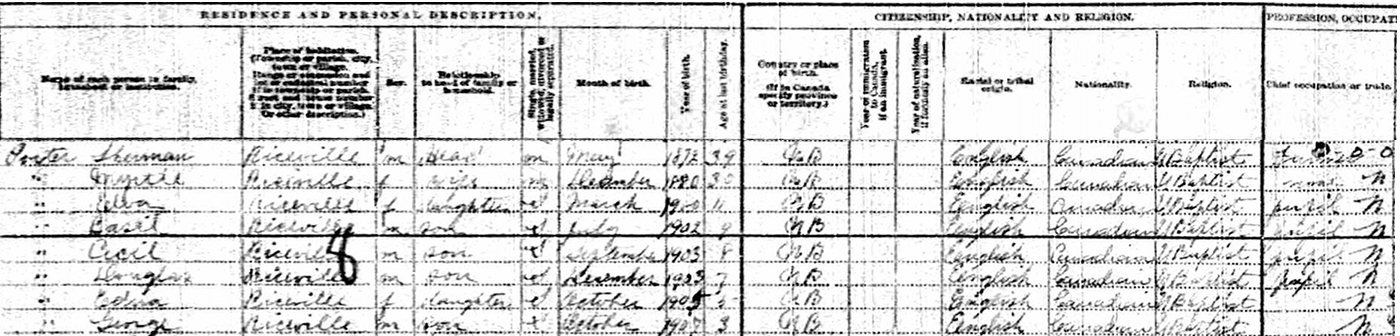 RESIDENCE AND PERSONAL DESCRIPTION. CITIZENSHIP, NATIONALITY AND RELIGION. PROFESSION, OCCUPAT
Name of each person in family, household or institution. Place of habitation. Sex. Relationship to head of family or household. Single, married, widowed, divorced or legally separated. Month of birth. Year of birth. Age at last birthday. Country or place of birth. (If in Canada specify province or territory.) Year of immigration to Canada, if an immigrant. Year of naturalization, if formerly an alien. Racial or tribal origin. Nationality. Religion. Chief occupation or trade.
Porter Sherman Riceville m Head m May 1872 39 N B English Canadian Baptist
" Myrtle Riceville f wife m December 1880 30 N B English Canadian Baptist none N
" Riceville f daughter s March 1900 11 N B English Canadian Baptist pupil N
" Basil Riceville m son s July 1902 9 N B English Canadian Baptist pupil N
" Cecil Riceville m son s September 1903 8 N B English Canadian Baptist pupil N
8
" Douglas Riceville m son s December 1903 7 N B English Canadian Baptist Pupil N
" Edna Riceville f daughter s October 5 N B English Canadian Baptist N
" George Riceville m son s October 3 N B English Canadian Baptist N